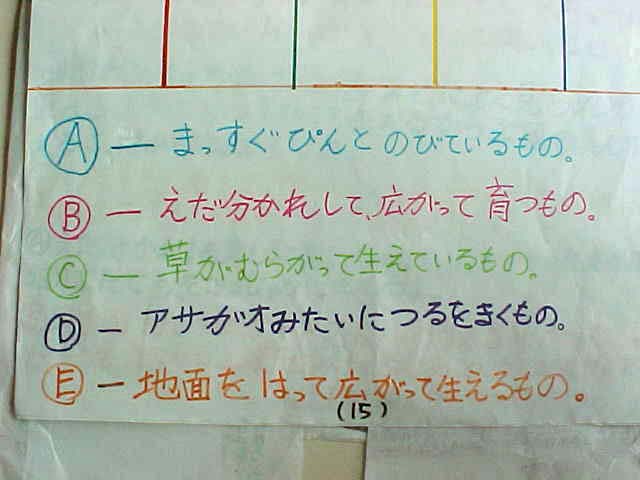 Ⓐ ― まっすぐぴんとのびているもの。
Ⓑ ― えだ分かれして、広がって育つもの。
Ⓒ ― 草がむらがって生えているもの。
Ⓓ ― アサガオみたいにつるをまくもの。
Ⓔ ― 地面をはって広がって生えるもの。
(15)